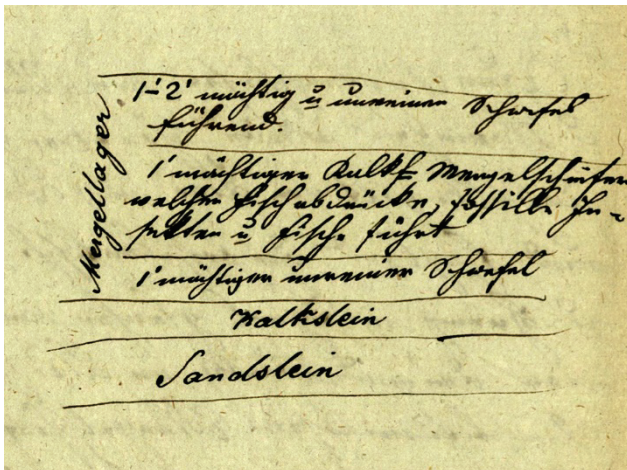 Mergellager
1'-2' mächtig u unreinen Schwefel
führend.
1' mächtiger Kalkf Mergelschiefer
welcher Fischabdrücke, fossille In-
sekten u Fische führt
1' mächtiger unreiner Schwefel
Kalkstein
Sandstein